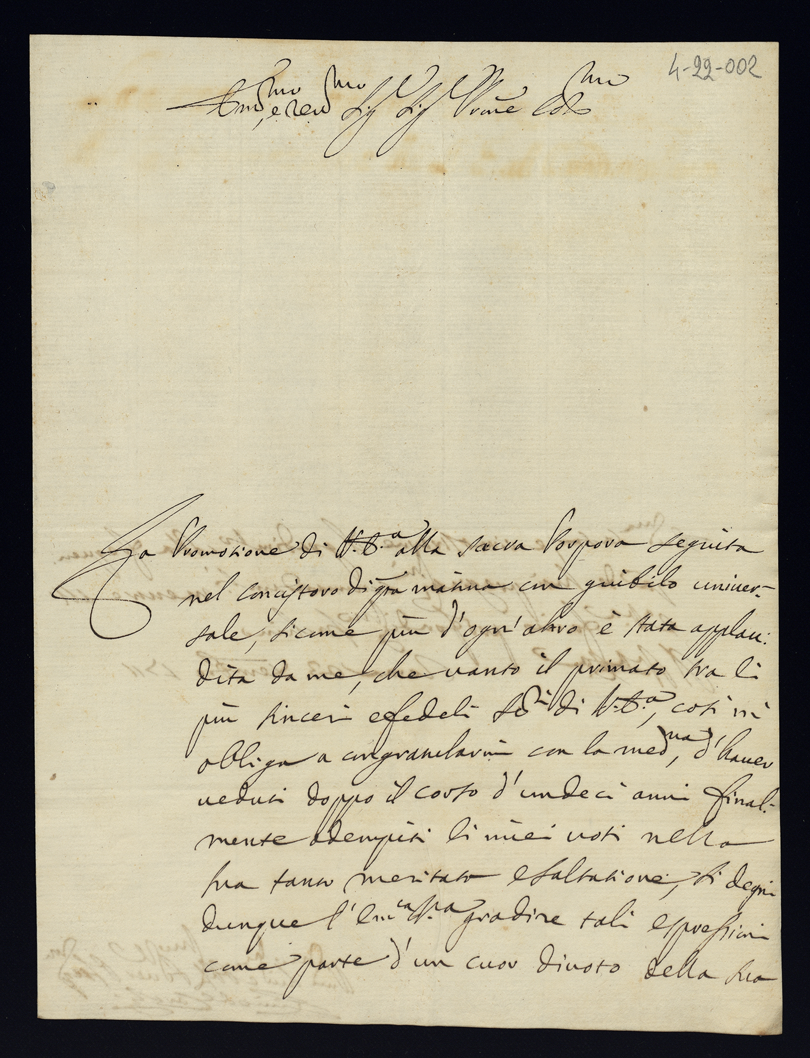 4-22-002
Em.mo e Rev.mo Sig.r Sig.r P'rone Col.mo
La Promotione di V.E.a alla sacra Porpora seguita
nel concistoro di q'sta matina con giubilo univer-
sale, sicome più d'ogn'altro è stata applau-
dita da me, che vanto il primato tra li
più sinceri e fedeli Ser.ri di V.E.a, così mi
obliga a congratularmi con la med.ma, d'haver
veduti doppo il corso d'undeci anni final-
mente adempiti li miei voti nella
sua tanto meritata esaltatione, si degni
dunque l'Em.a V.ra gradire tali espressioni
come parte d'un cuor divoto della sua